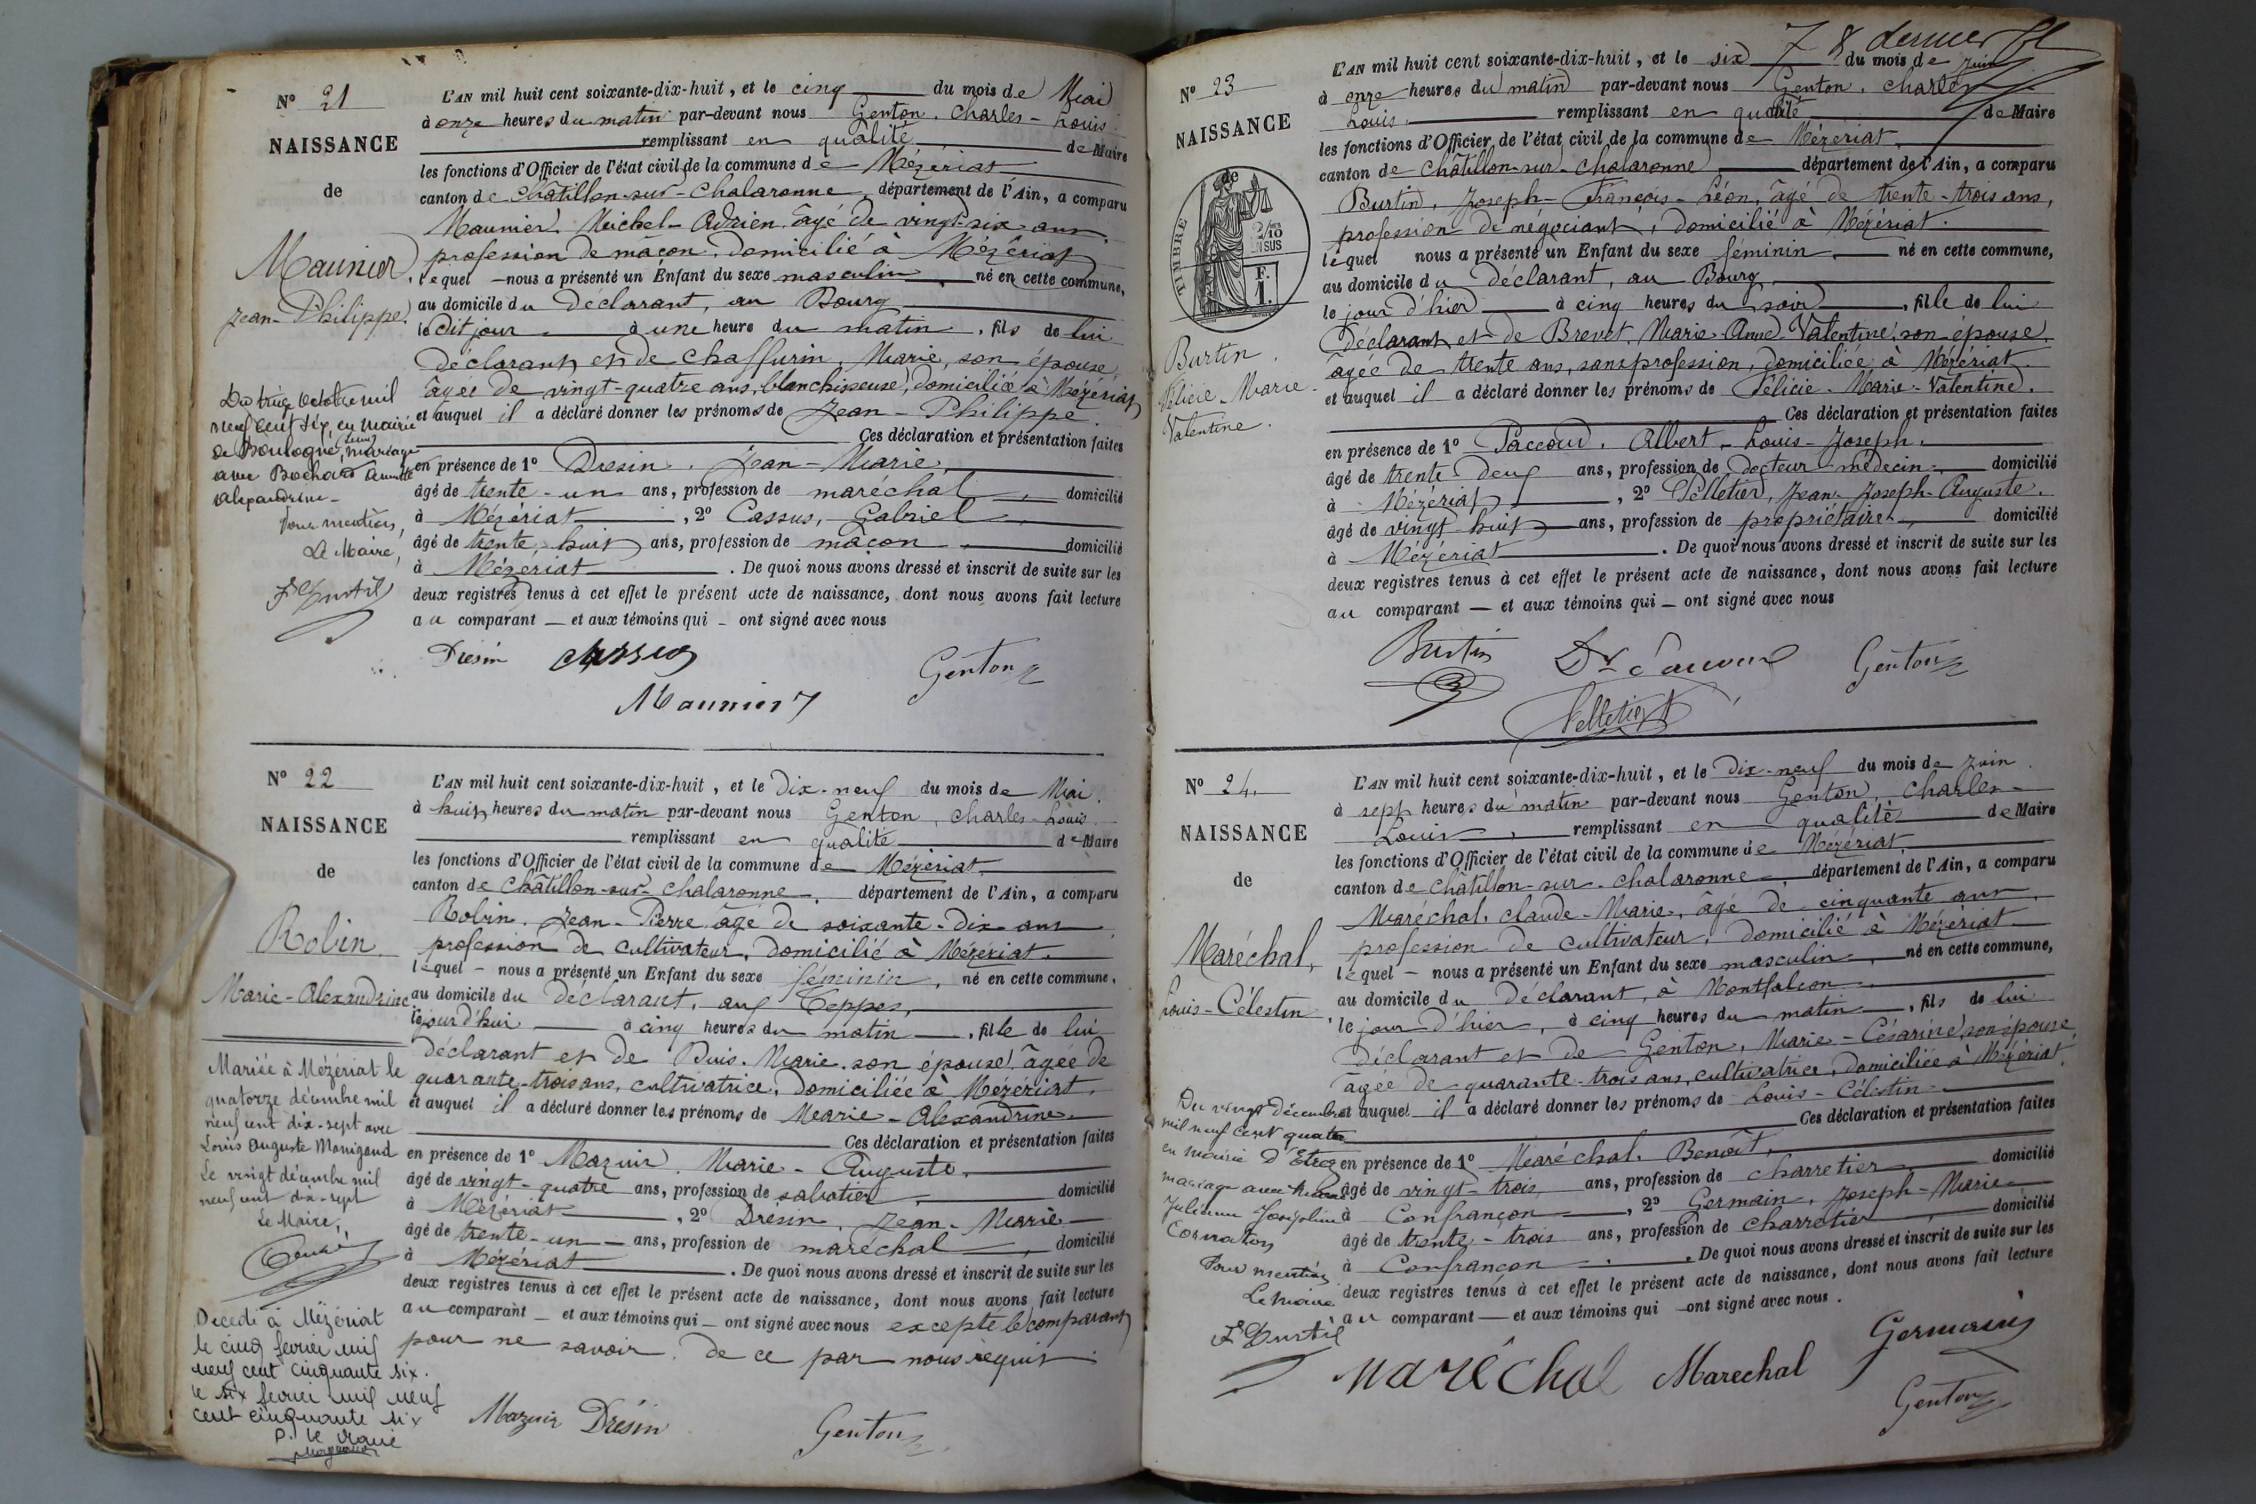 N° 21
NAISSANCE
de
Maunier,
Jean-Philippe.
Du treize octobre mil
neuf cent six, en mairie
de Boulogne, mariage
avec Bochard
Alexandrine.
Pour mention,
Le Maire,
L'AN mil huit cent soixante-dix-huit, et le cinq du mois de Mai
à onze heures du matin par-devant nous Genton, Charles-Louis.
remplissant en qualité de Maire
les fonctions d'Officier de l'état civil de la commune de Mézériat
canton de Châtillon-sur-Chalaronne, département de l'Ain, a comparu
Maunier, Michel-Adrien, âgé de vingt-six ans,
profession de maçon, domicilié à Mézériat,
lequel nous a présenté un Enfant du sexe masculin, né en cette commune,
au domicile du Déclarant, au Bourg
le dit jour à une heure du matin, fils de lui
Déclarant et de Chaffurin, Marie, son épouse,
âgée de vingt-quatre ans, blanchisseuse, domiciliée à Mézériat,
et auquel il a déclaré donner les prénoms de Jean-Philippe.
Ces déclaration et présentation faites
en présence de 1° Drésin, Jean-Marie,
âgé de trente-un ans, profession de maréchal, domicilié
à Mézériat, 2° Cassus, Gabriel,
âgé de trente-huit ans, profession de maçon, domicilié
à Mézériat. De quoi nous avons dressé et inscrit de suite sur les
deux registres tenus à cet effet le présent acte de naissance, dont nous avons fait lecture
au comparant et aux témoins qui ont signé avec nous
Drésin Cassus Genton
Maunier
N° 22
NAISSANCE
de
Robin,
Marie-Alexandrine
Mariée à Mézériat le
quatorze décembre mil
neuf cent dix-sept avec
Louis Auguste Monigaud
Le vingt décembre mil
neuf cent dix-sept
Le Maire,
Décédé à Mézériat
le cinq fevrier mil
neuf cent cinquante six.
le six fevrier mil neuf
cent cinquante six
P. le Maire
L'AN mil huit cent soixante-dix-huit, et le Dix-neuf du mois de Mai.
à huit heures du matin par-devant nous Genton, Charles-Louis
remplissant en qualité de Maire
les fonctions d'Officier de l'état civil de la commune de Mézériat
canton de Châtillon-sur-Chalaronne, département de l'Ain, a comparu
Robin, Jean-Pierre âgé de soixante-dix ans
profession de cultivateur, domicilié à Mézériat.
lequel nous a présenté un Enfant du sexe féminin, né en cette commune,
au domicile du Déclarant, aux Teppes,
le jour d'hui à cinq heures du matin, fille de lui
déclarant et de Puis, Marie, son épouse, âgée de
quarante-trois ans, cultivatrice, domiciliée à Mézériat,
et auquel il a déclaré donner les prénoms de Marie-Alexandrine.
Ces déclaration et présentation faites
en présence de 1° Mazuir, Marie-Auguste,
âgé de vingt-quatre ans, profession de sabotier, domicilié
à Mézériat, 2° Drésin, Jean-Marie
âgé de trente-un ans, profession de maréchal, domicilié
à Mézériat. De quoi nous avons dressé et inscrit de suite sur les
deux registres tenus à cet effet le présent acte de naissance, dont nous avons fait lecture
au comparant et aux témoins qui ont signé avec nous excepté le comparant
pour ne savoir de ce par nous requis.
Mazuir Drésin Genton
7 8 dernier
N° 23
NAISSANCE
de
TIMBRE
2/10
EN SUS
F.
1.
Burtin,
Félicie-Marie-
Valentine.
L'AN mil huit cent soixante-dix-huit, et le six du mois de Juin
à onze heures du matin par-devant nous Genton, Charles
Louis. remplissant en qualité de Maire
les fonctions d'Officier de l'état civil de la commune de Mézériat,
canton de Châtillon-sur-Chalaronne département de l'Ain, a comparu
Burtin, Joseph-François-Léon, âgé de trente-trois ans,
profession de négociant, domicilié à Mézériat.
lequel nous a présenté un Enfant du sexe féminin, né en cette commune,
au domicile du déclarant, au Bourg
le jour d'hier à cinq heures du soir, fille de lui
Déclarant et de Brevet, Marie-Anne-Valentine, son épouse,
âgée de trente ans, sans profession, domiciliée à Mézériat.
et auquel il a déclaré donner les prénoms de Félicie-Marie-Valentine.
Ces déclaration et présentation faites
en présence de 1° Paccoud, Albert-Louis-Joseph,
âgé de trente-deux ans, profession de Docteur-médecin, domicilié
à Mézériat, 2° Pelletier, Jean-Joseph-Auguste,
âgé de vingt-huit ans, profession de propriétaire, domicilié
à Mézériat. De quoi nous avons dressé et inscrit de suite sur les
deux registres tenus à cet effet le présent acte de naissance, dont nous avons fait lecture
au comparant et aux témoins qui ont signé avec nous
Burtin Dr Paccoud Genton
Pelletier
N° 24.
NAISSANCE
de
Maréchal,
Louis-Célestin
Du vingt Décembre
mil neuf cent quatre
en mairie d'Etrez
mariage avec
Julienne Joséphine
Cormaton
Pour mention
Le Maire
L'AN mil huit cent soixante-dix-huit, et le Dix-neuf du mois de Juin.
à sept heures du matin par-devant nous Genton, Charles-
Louis, remplissant en qualité de Maire
les fonctions d'Officier de l'état civil de la commune de Mézériat,
canton de Châtillon-sur-Chalaronne, département de l'Ain, a comparu
Maréchal, Claude-Marie, âgé de cinquante ans,
profession de cultivateur, domicilié à Mézériat
lequel nous a présenté un Enfant du sexe masculin, né en cette commune,
au domicile du Déclarant, à Montfalcon
le jour d'hier, à cinq heures du matin, fils de lui
Déclarant et de Genton, Marie-Césarine, son épouse,
âgée de quarante-trois ans, cultivatrice, domiciliée à Mézériat,
et auquel il a déclaré donner les prénoms de Louis-Célestin
Ces déclaration et présentation faites
en présence de 1° Maréchal, Benoît,
âgé de vingt-trois ans, profession de charretier domicilié
à Confrançon, 2° Germain, Joseph-Marie
âgé de trente-trois ans, profession de charretier, domicilié
à Confrançon. De quoi nous avons dressé et inscrit de suite sur les
deux registres tenus à cet effet le présent acte de naissance, dont nous avons fait lecture
au comparant et aux témoins qui ont signé avec nous.
Maréchal Marechal Germain
Genton